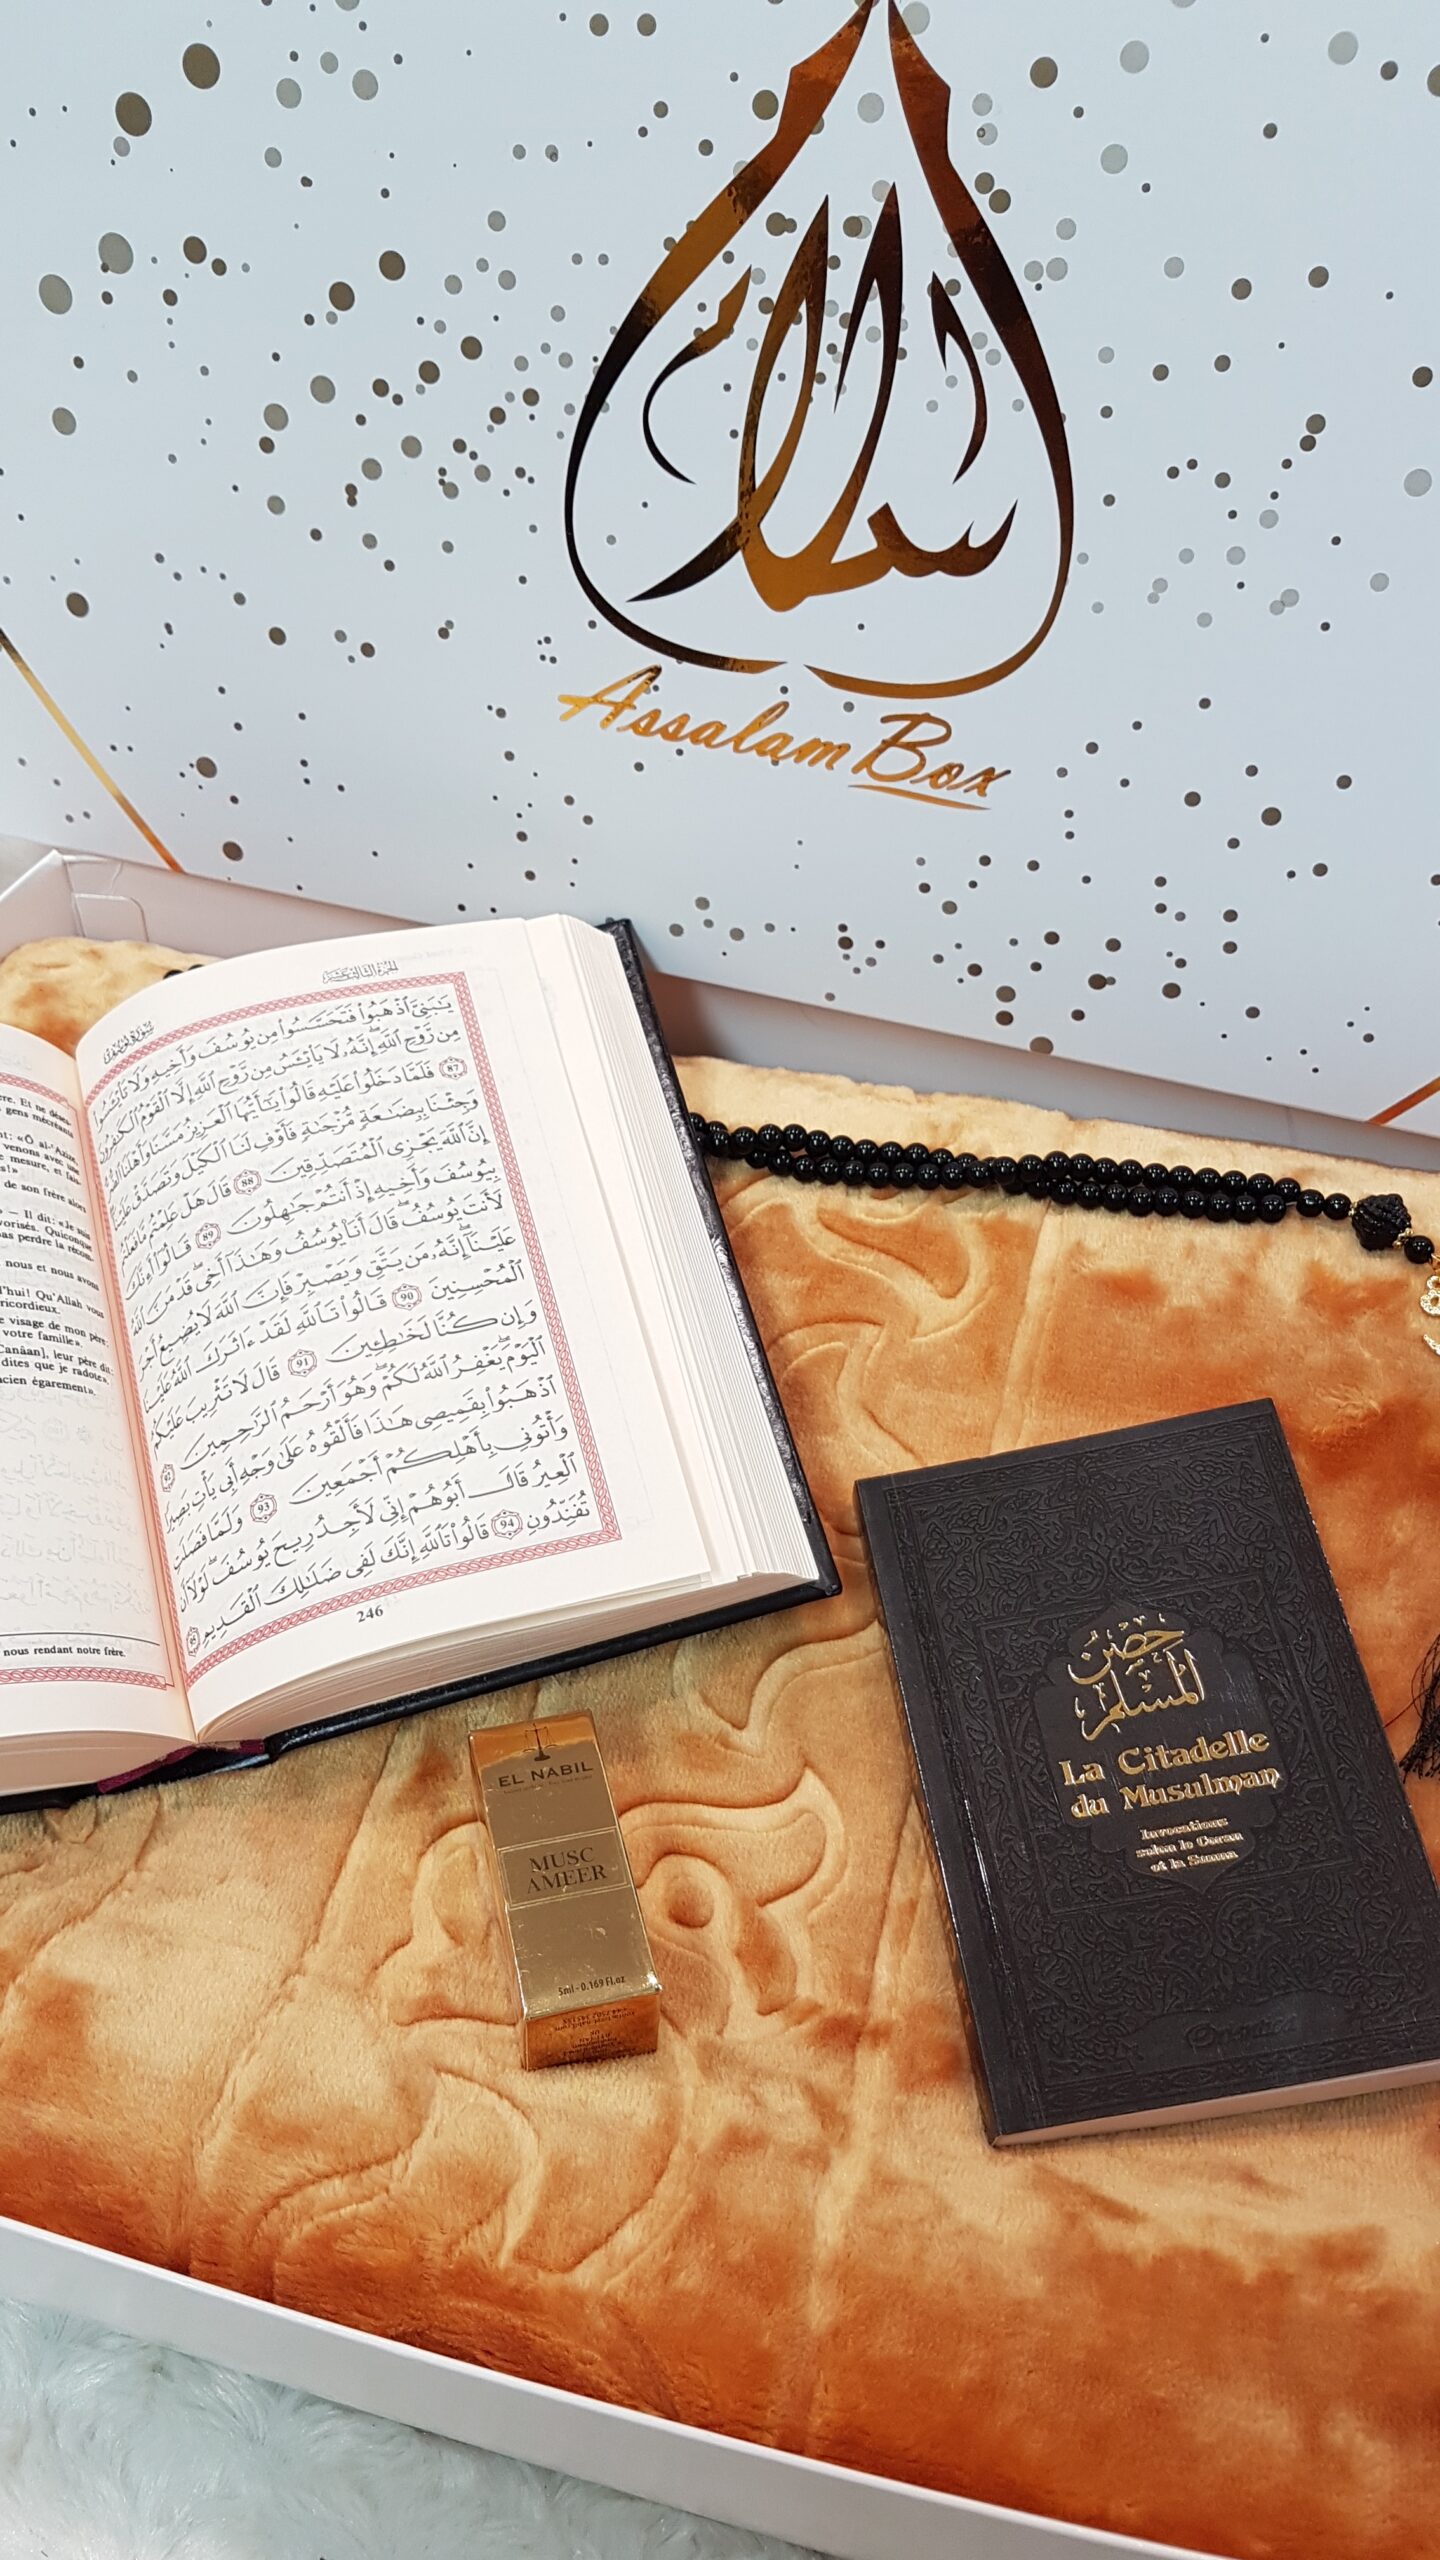 سلام
Assalam Box
الجزء الثالث عشر
سورة يوسف
يَٰبَنِيَّ ٱذْهَبُواْ فَتَحَسَّسُواْ مِن يُوسُفَ وَأَخِيهِ وَلَا تَاْيْـَٔسُواْ
مِن رَّوْحِ ٱللَّهِ إِنَّهُۥ لَا يَاْيْـَٔسُ مِن رَّوْحِ ٱللَّهِ إِلَّا ٱلْقَوْمُ ٱلْكَٰفِرُونَ
87 فَلَمَّا دَخَلُواْ عَلَيْهِ قَالُواْ يَٰٓأَيُّهَا ٱلْعَزِيزُ مَسَّنَا وَأَهْلَنَا ٱلضُّرُّ
وَجِئْنَا بِبِضَٰعَةٍ مُّزْجَىٰةٍ فَأَوْفِ لَنَا ٱلْكَيْلَ وَتَصَدَّقْ عَلَيْنَآ
إِنَّ ٱللَّهَ يَجْزِى ٱلْمُتَصَدِّقِينَ 88 قَالَ هَلْ عَلِمْتُم مَّا فَعَلْتُم
بِيُوسُفَ وَأَخِيهِ إِذْ أَنتُمْ جَٰهِلُونَ 89 قَالُوٓاْ أَءِنَّكَ
لَأَنتَ يُوسُفُ قَالَ أَنَا۠ يُوسُفُ وَهَٰذَآ أَخِى قَدْ مَنَّ ٱللَّهُ
عَلَيْنَآ إِنَّهُۥ مَن يَتَّقِ وَيَصْبِرْ فَإِنَّ ٱللَّهَ لَا يُضِيعُ أَجْرَ
ٱلْمُحْسِنِينَ 90 قَالُواْ تَٱللَّهِ لَقَدْ ءَاثَرَكَ ٱللَّهُ عَلَيْنَا
وَإِن كُنَّا لَخَٰطِـِٔينَ 91 قَالَ لَا تَثْرِيبَ عَلَيْكُمُ
ٱلْيَوْمَ يَغْفِرُ ٱللَّهُ لَكُمْ وَهُوَ أَرْحَمُ ٱلرَّٰحِمِينَ 92
ٱذْهَبُواْ بِقَمِيصِى هَٰذَا فَأَلْقُوهُ عَلَىٰ وَجْهِ أَبِى يَأْتِ بَصِيرًا
وَأْتُونِى بِأَهْلِكُمْ أَجْمَعِينَ 93 وَلَمَّا فَصَلَتِ
ٱلْعِيرُ قَالَ أَبُوهُمْ إِنِّى لَأَجِدُ رِيحَ يُوسُفَ لَوْلَآ أَن
تُفَنِّدُونِ 94 قَالُواْ تَٱللَّهِ إِنَّكَ لَفِى ضَلَٰلِكَ ٱلْقَدِيمِ 95
246
ere. Et ne déses-
gens mécréants
nt: «Ô al-'Azize,
venons avec une
e mesure, et fais-
es!»
de son frère alors
» — Il dit: «Je suis
vorisés. Quiconque
pas perdre la récom-
nous et nous avons
d'hui! Qu'Allah vous
ricordieux.
e visage de mon père:
votre famille».
Canâan], leur père dit:
dites que je radote».
ancien égarement».
nous rendant notre frère.
EL NABIL
MUSC
AMEER
5ml - 0.169 Fl.oz
حصن
المسلم
La Citadelle
du Musulman
Invocations
selon le Coran
et la Sunna